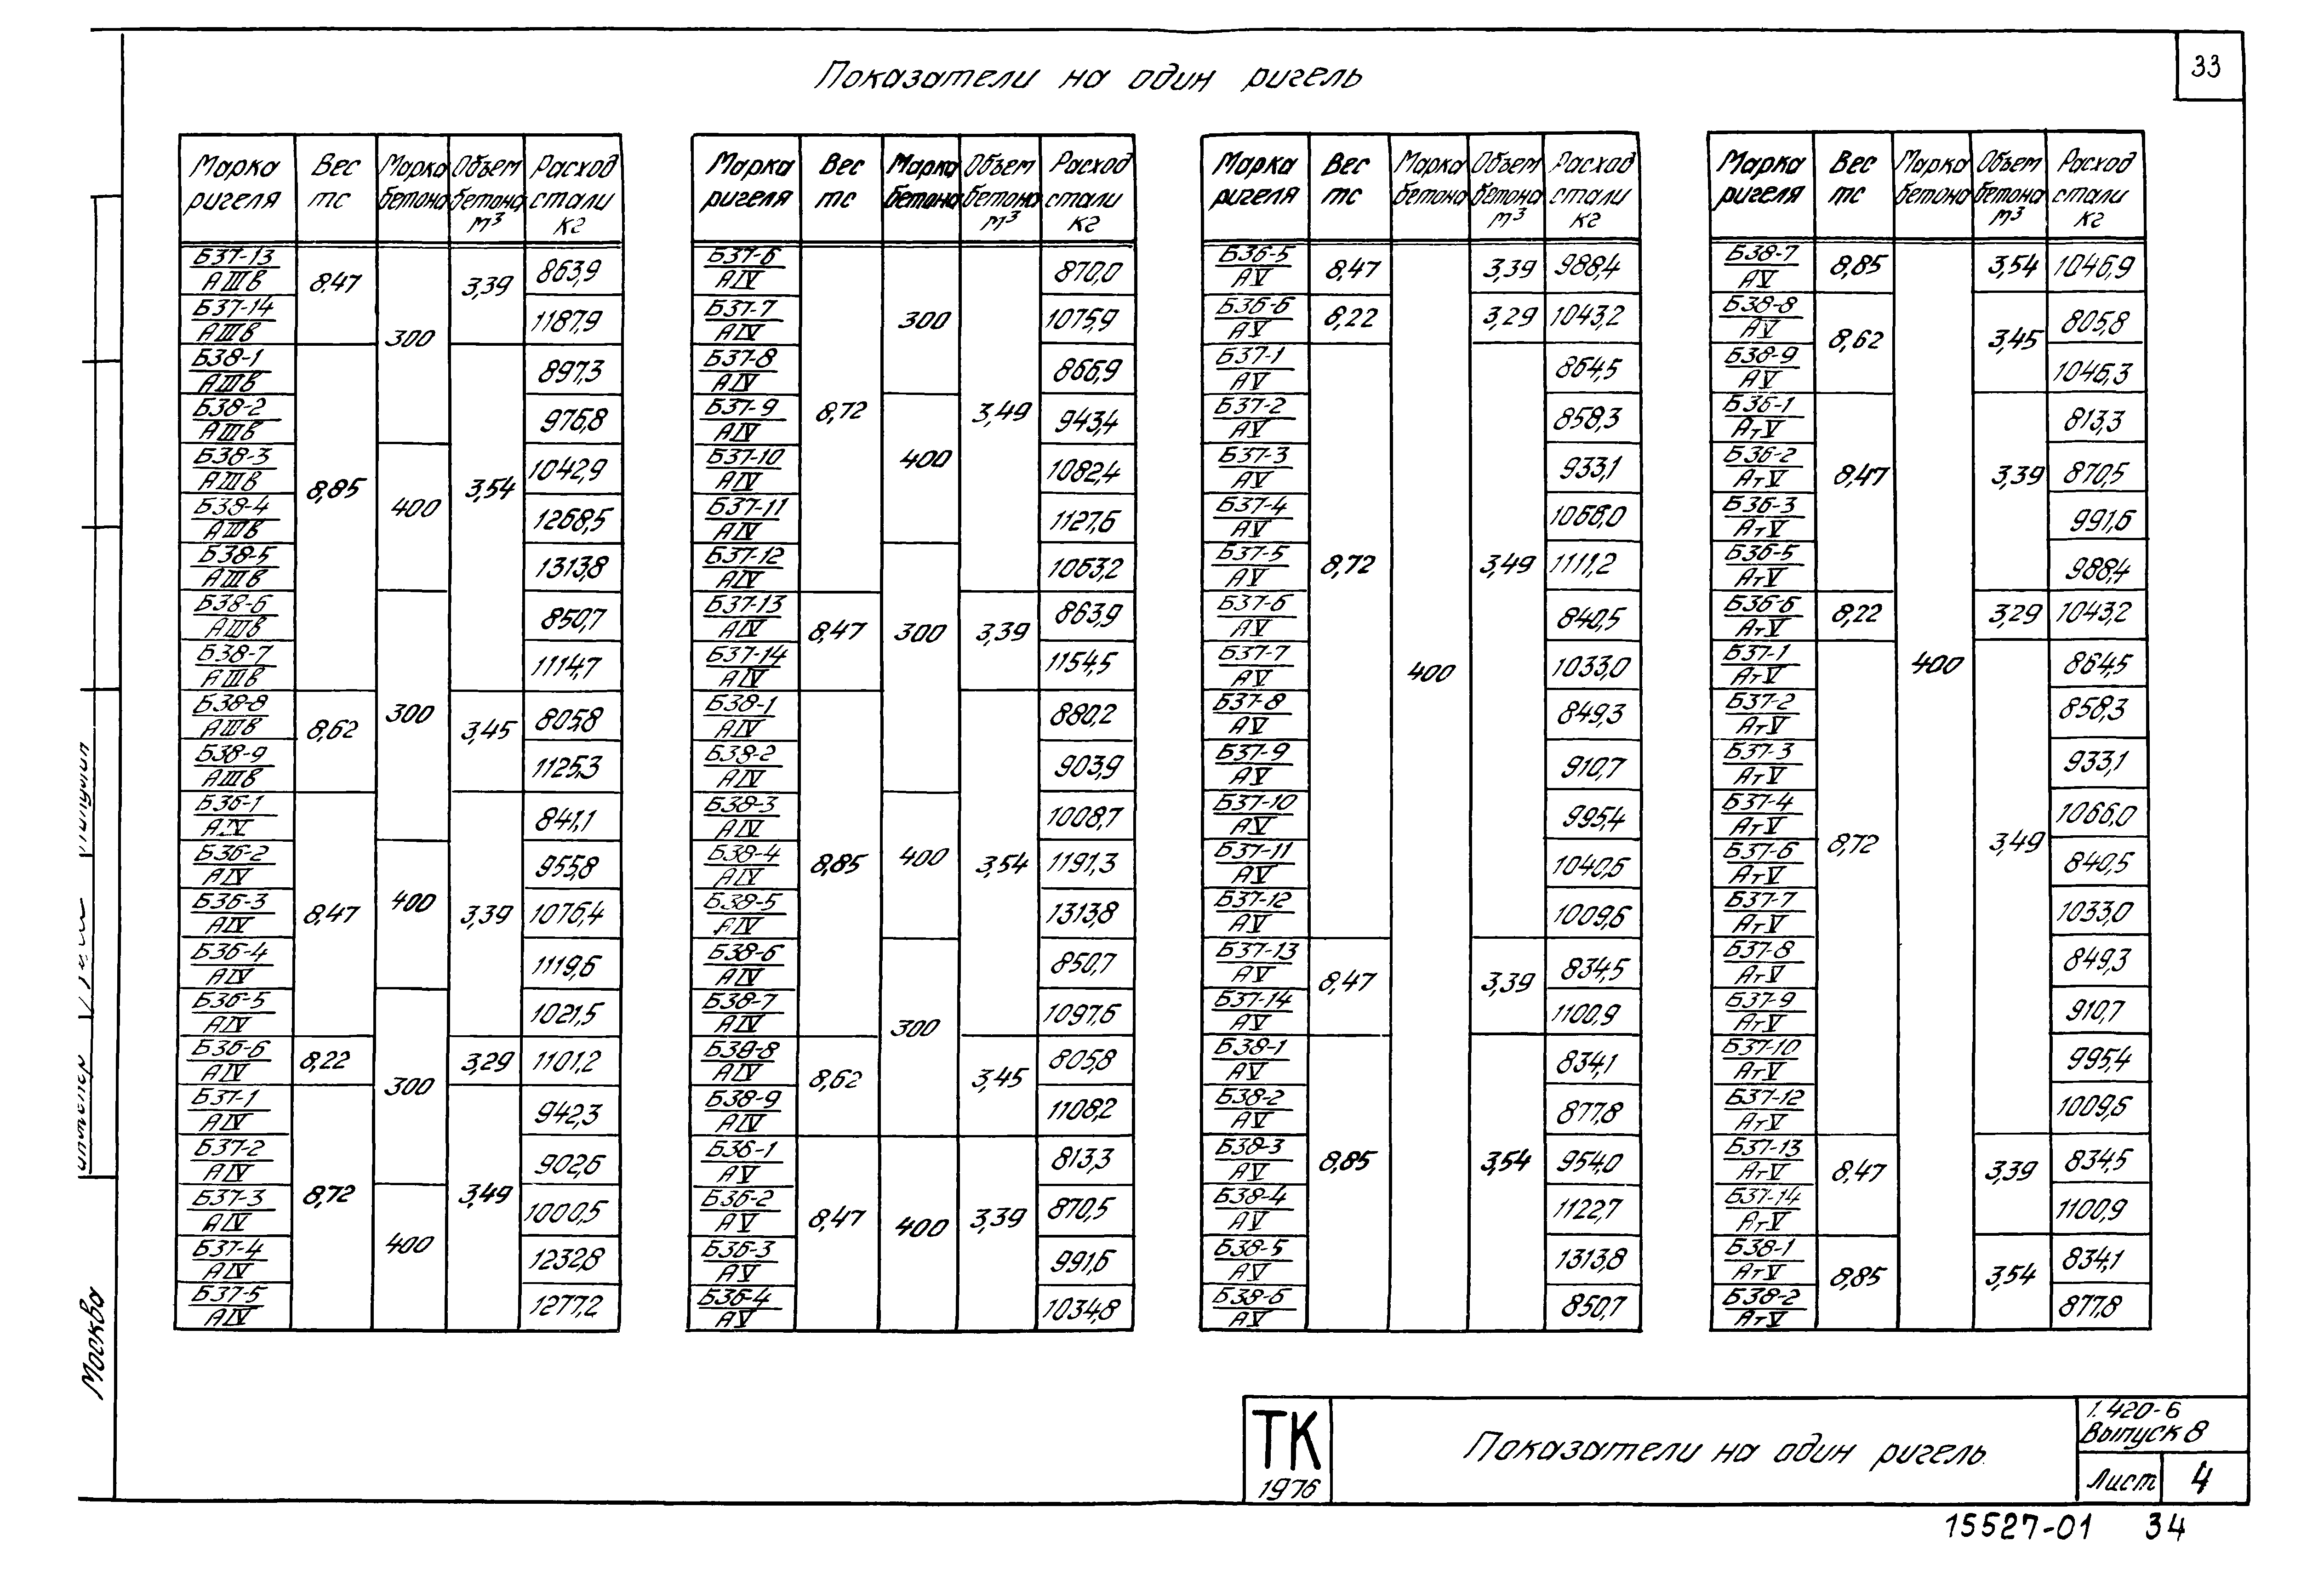 33
Показатели на один ригель
Марка ригеля | Вес тс | Марка бетона | Объем бетона м³ | Расход стали кг
Б37-13 АIIIв | 8,47 | 300 | 3,39 | 863,9
Б37-14 АIIIв | 1187,9
Б38-1 АIIIв | 8,85 | 3,54 | 897,3
Б38-2 АIIIв | 976,8
Б38-3 АIIIв | 400 | 1042,9
Б38-4 АIIIв | 1268,5
Б38-5 АIIIв | 1313,8
Б38-6 АIIIв | 300 | 850,7
Б38-7 АIIIв | 1114,7
Б38-8 АIIIв | 8,62 | 3,45 | 805,8
Б38-9 АIIIв | 1125,3
Б36-1 АIV | 8,47 | 3,39 | 841,1
Б36-2 АIV | 400 | 955,8
Б36-3 АIV | 1076,4
Б36-4 АIV | 1119,6
Б36-5 АIV | 300 | 1021,5
Б36-6 АIV | 8,22 | 3,29 | 1101,2
Б37-1 АIV | 8,72 | 3,49 | 942,3
Б37-2 АIV | 902,6
Б37-3 АIV | 400 | 1000,5
Б37-4 АIV | 1232,8
Б37-5 АIV | 1277,2
Марка ригеля | Вес тс | Марка бетона | Объем бетона м³ | Расход стали кг
Б37-6 АIV | 8,72 | 300 | 3,49 | 870,0
Б37-7 АIV | 1075,9
Б37-8 АIV | 866,9
Б37-9 АIV | 400 | 943,4
Б37-10 АIV | 1082,4
Б37-11 АIV | 1127,6
Б37-12 АIV | 300 | 1063,2
Б37-13 АIV | 8,47 | 3,39 | 863,9
Б37-14 АIV | 1154,5
Б38-1 АIV | 8,85 | 3,54 | 880,2
Б38-2 АIV | 903,9
Б38-3 АIV | 400 | 1008,7
Б38-4 АIV | 1191,3
Б38-5 АIV | 1313,8
Б38-6 АIV | 300 | 850,7
Б38-7 АIV | 1097,6
Б38-8 АIV | 8,62 | 3,45 | 805,8
Б38-9 АIV | 1108,2
Б36-1 АV | 8,47 | 400 | 3,39 | 813,3
Б36-2 АV | 870,5
Б36-3 АV | 991,6
Б36-4 АV | 1034,8
Марка ригеля | Вес тс | Марка бетона | Объем бетона м³ | Расход стали кг
Б36-5 АV | 8,47 | 400 | 3,39 | 988,4
Б36-6 АV | 8,22 | 3,29 | 1043,2
Б37-1 АV | 8,72 | 3,49 | 864,5
Б37-2 АV | 858,3
Б37-3 АV | 933,1
Б37-4 АV | 1066,0
Б37-5 АV | 1111,2
Б37-6 АV | 840,5
Б37-7 АV | 1033,0
Б37-8 АV | 849,3
Б37-9 АV | 910,7
Б37-10 АV | 995,4
Б37-11 АV | 1040,6
Б37-12 АV | 1009,6
Б37-13 АV | 8,47 | 3,39 | 834,5
Б37-14 АV | 1100,9
Б38-1 АV | 8,85 | 3,54 | 834,1
Б38-2 АV | 877,8
Б38-3 АV | 954,0
Б38-4 АV | 1122,7
Б38-5 АV | 1313,8
Б38-6 АV | 850,7
Марка ригеля | Вес тс | Марка бетона | Объем бетона м³ | Расход стали кг
Б38-7 АV | 8,85 | 400 | 3,54 | 1046,9
Б38-8 АV | 8,62 | 3,45 | 805,8
Б38-9 АV | 1046,3
Б36-1 АтV | 8,47 | 3,39 | 813,3
Б36-2 АтV | 870,5
Б36-3 АтV | 991,6
Б36-5 АтV | 988,4
Б36-6 АтV | 8,22 | 3,29 | 1043,2
Б37-1 АтV | 8,72 | 3,49 | 864,5
Б37-2 АтV | 858,3
Б37-3 АтV | 933,1
Б37-4 АтV | 1066,0
Б37-6 АтV | 840,5
Б37-7 АтV | 1033,0
Б37-8 АтV | 849,3
Б37-9 АтV | 910,7
Б37-10 АтV | 995,4
Б37-12 АтV | 1009,6
Б37-13 АтV | 8,47 | 3,39 | 834,5
Б37-14 АтV | 1100,9
Б38-1 АтV | 8,85 | 3,54 | 834,1
Б38-2 АтV | 877,8
Москва
ТК
1976
Показатели на один ригель
1.420-6
Выпуск 8
Лист 4
15527-01 34